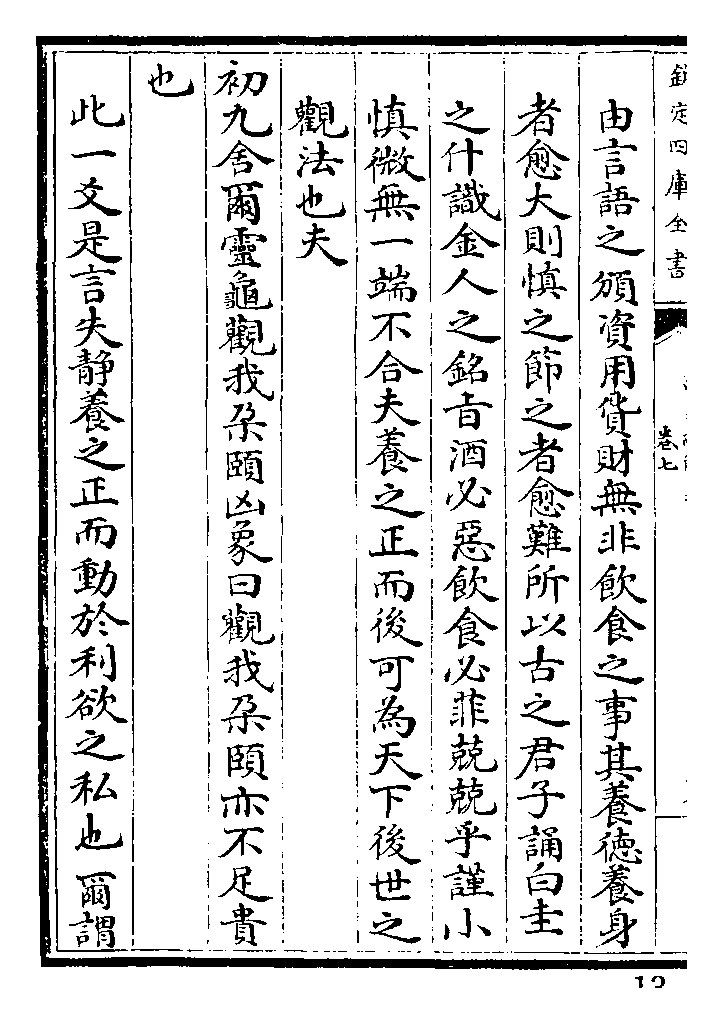 欽定四庫全書
卷七
由言語之頒資用貨財無非飲食之事其養德養身
者愈大則慎之節之者愈難所以古之君子誦白圭
之什識金人之銘旨酒必惡飲食必菲兢兢乎謹小
慎微無一端不合夫養之正而後可為天下後世之
觀法也夫
初九舍爾靈龜觀我朶頤凶象曰觀我朶頤亦不足貴
也
此一爻是言失靜養之正而動於利欲之私也爾謂